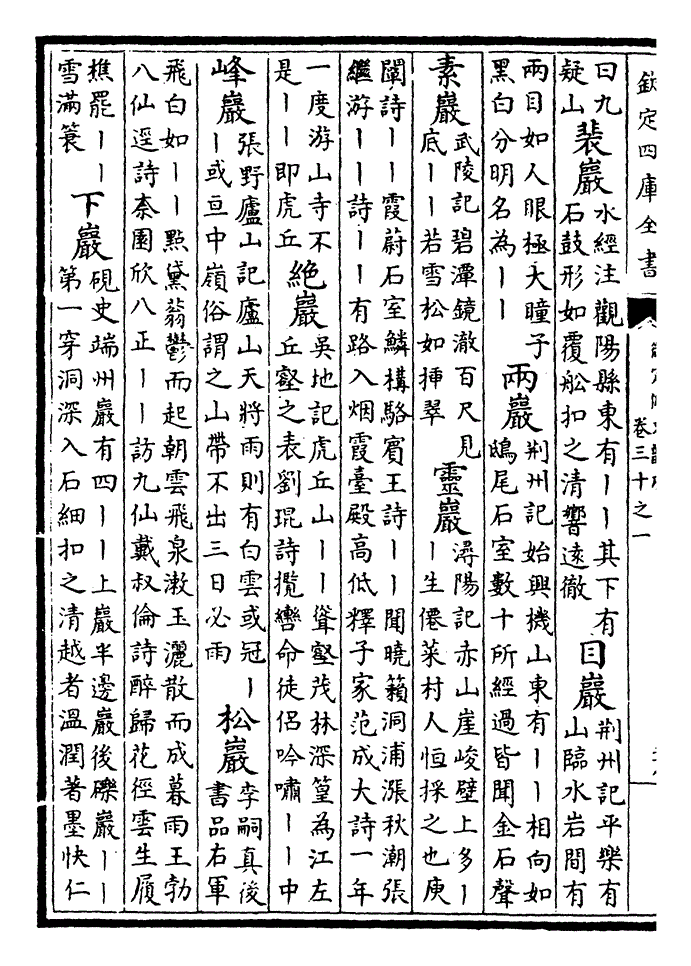 欽定四庫全書
卷三十之一
曰九
疑山
裴巖
水經注觀陽縣東有丨丨其下有
石鼓形如覆舩扣之清響遠徹
目巖
荆州記平樂有
山臨水岩間有
兩目如人眼極大瞳子
黑白分明名為丨丨
兩巖
荆州記始興機山東有丨丨相向如
鴟尾石室數十所經過皆聞金石聲
素巖
武陵記碧潭鏡澈百尺見
底丨丨若雪松如揷翠
靈巖
潯陽記赤山崖峻壁上多丨
丨生僊菜村人恒採之也庾
闡詩丨丨霞蔚石室鱗構駱賓王詩丨丨聞曉籟洞浦漲秋潮張
繼游丨丨詩丨丨有路入烟霞臺殿高低釋子家范成大詩一年
一度游山寺不
是丨丨即虎丘
絶巖
吳地記虎丘山丨丨聳壑茂林深篁為江左
丘壑之表劉琨詩攬轡命徒侣吟嘯丨丨中
峰巖
張野廬山記廬山天將雨則有白雲或冠丨
丨或亘中嶺俗謂之山帶不出三日必雨
松巖
李嗣真後
書品右軍
飛白如丨丨點黛蓊鬱而起朝雲飛泉漱玉灑散而成暮雨王勃
八仙逕詩柰園欣八正丨丨訪九仙戴叔倫詩醉歸花徑雲生履
樵罷丨丨
雪滿蓑
下巖
硯史端州巖有四丨丨上巖半邊巖後礫巖丨丨
第一穿洞深入石細扣之清越者溫潤著墨快仁